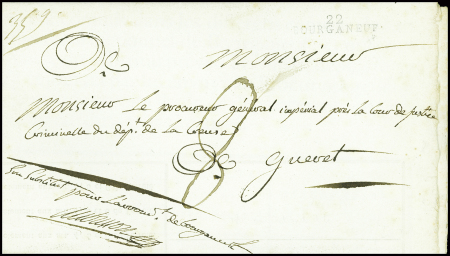 22
BOURGANEUF
A Monsieur
Monsieur Le procureur général impérial près la Cour de Justice
Criminelle du dép.t de la Creuse
A Gueret
8
Son Substitut pour l'arrond.t de bourganeuf